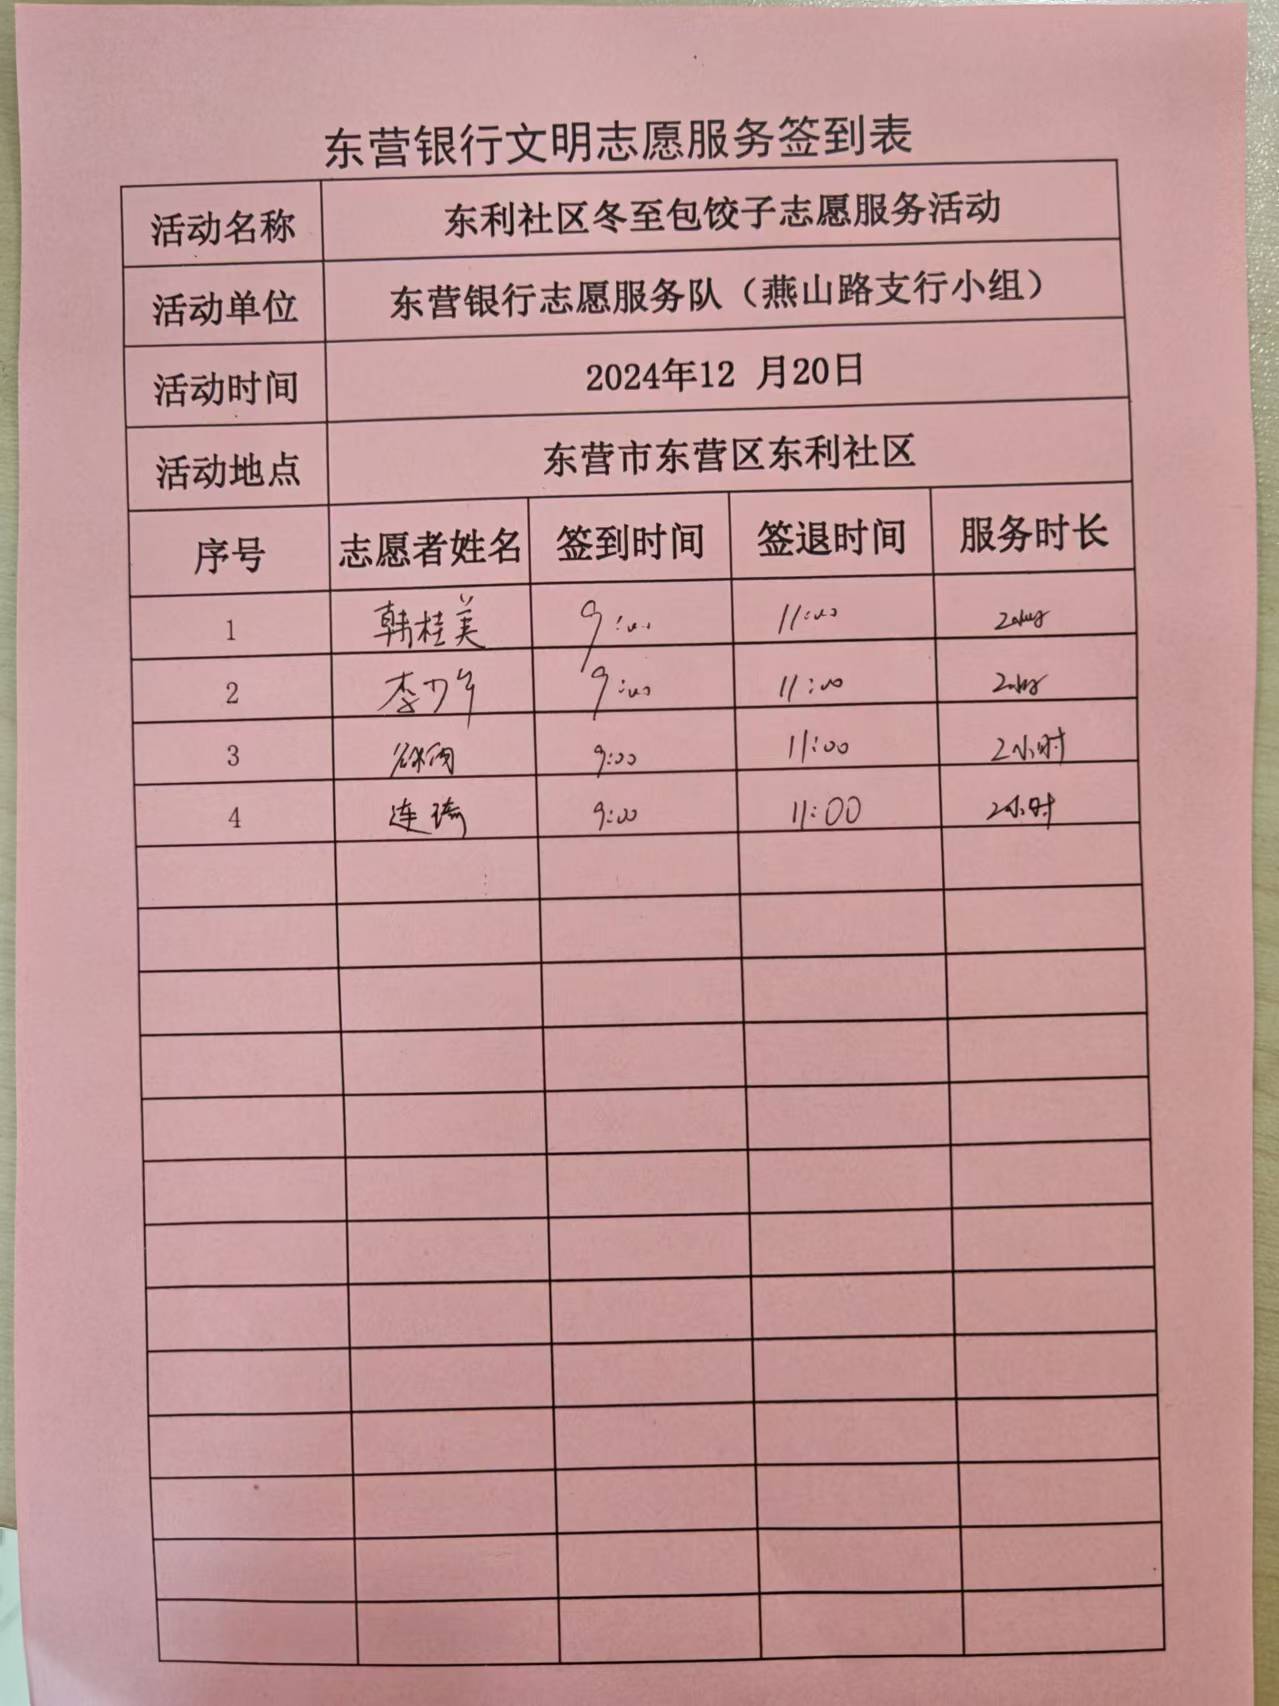 东营银行文明志愿服务签到表
活动名称 东利社区冬至包饺子志愿服务活动
活动单位 东营银行志愿服务队（燕山路支行小组）
活动时间 2024年12 月20日
活动地点 东营市东营区东利社区
序号 志愿者姓名 签到时间 签退时间 服务时长
1 韩桂美 9:00 11:00 2小时
2 李少华 9:00 11:00 2小时
3 9:00 11:00 2小时
4 连琦 9:00 11:00 2小时